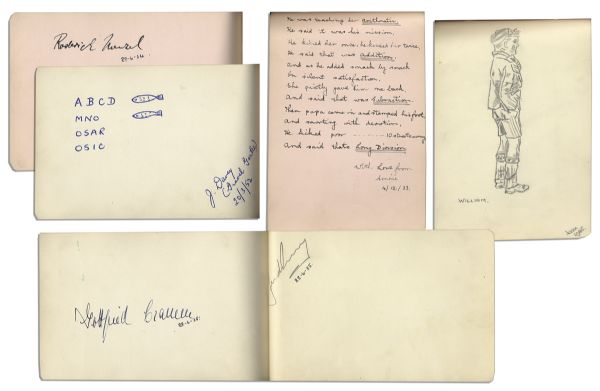 Roderick Menzel
22-6-34
A B C D
MNO
OSAR
OSIC
J. Davey
20/3/52
He was teaching her Arithmetic,
He said it was his mission,
He kissed her once, he kissed her twice,
He said that was addition.
And as he added smack by smack
In silent satisfaction,
She gently gave him one back
And said that was Subtraction.
Then papa came in and stamped his foot,
And snorting with
He kicked poor ---------- 10 streets away
And said thats Long Division
With Love from
4/12/33.
WILLIAM.
Gottfried Cramm
22-6-35.
22-6-35